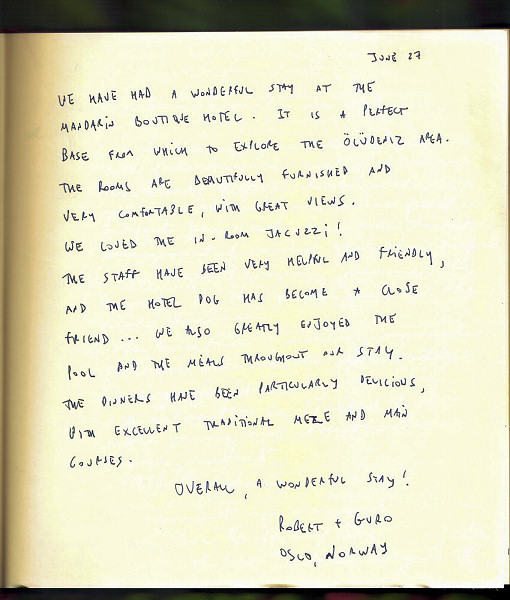 JUNE 27
WE HAVE HAD A WONDERFUL STAY AT THE
MANDARIN BOUTIQUE HOTEL. IT IS A PERFECT
BASE FROM WHICH TO EXPLORE THE ÖLÜDENIZ AREA.
THE ROOMS ARE BEAUTIFULLY FURNISHED AND
VERY COMFORTABLE, WITH GREAT VIEWS.
WE LOVED THE IN-ROOM JACUZZI!
THE STAFF HAVE BEEN VERY HELPFUL AND FRIENDLY,
AND THE HOTEL DOG HAS BECOME A CLOSE
FRIEND... WE ALSO GREATLY ENJOYED THE
POOL AND THE MEALS THROUGHOUT OUR STAY.
THE DINNERS HAVE BEEN PARTICULARLY DELICIOUS,
WITH EXCELLENT TRADITIONAL MEZE AND MAIN
COURSES.
OVERALL, A WONDERFUL STAY!
ROBERT + GURO
OSLO, NORWAY